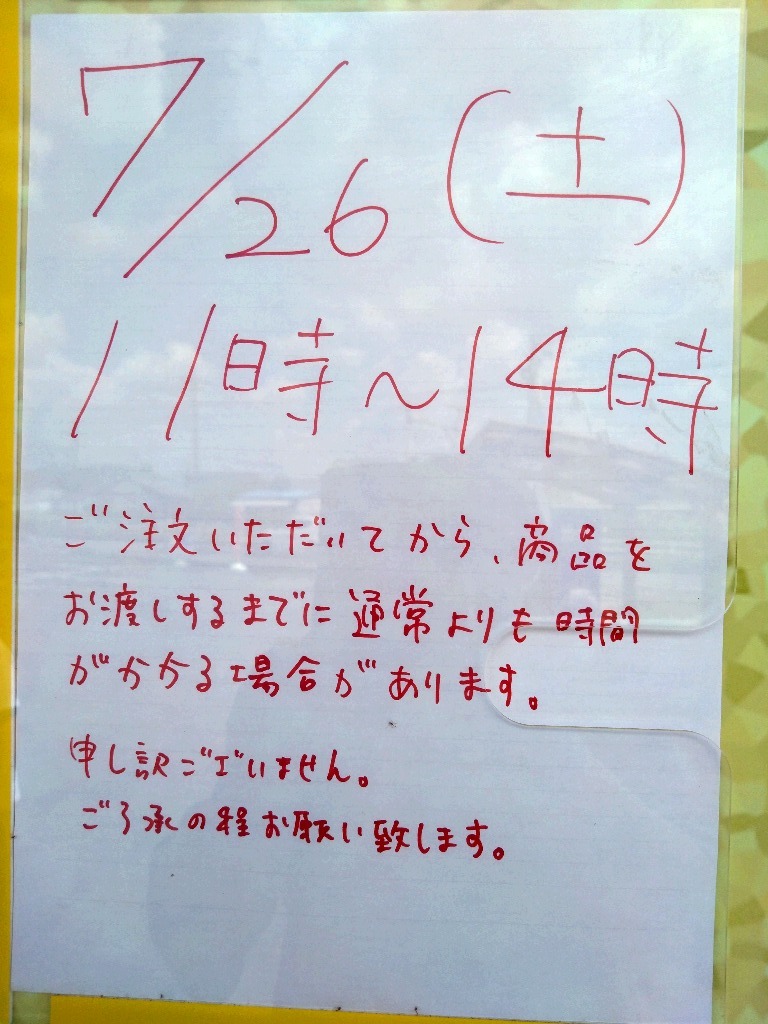 7/26(土)
11時～14時
ご注文いただいてから、商品を
お渡しするまでに通常よりも時間
がかかる場合があります。
申し訳ございません。
ご了承の程お願い致します。